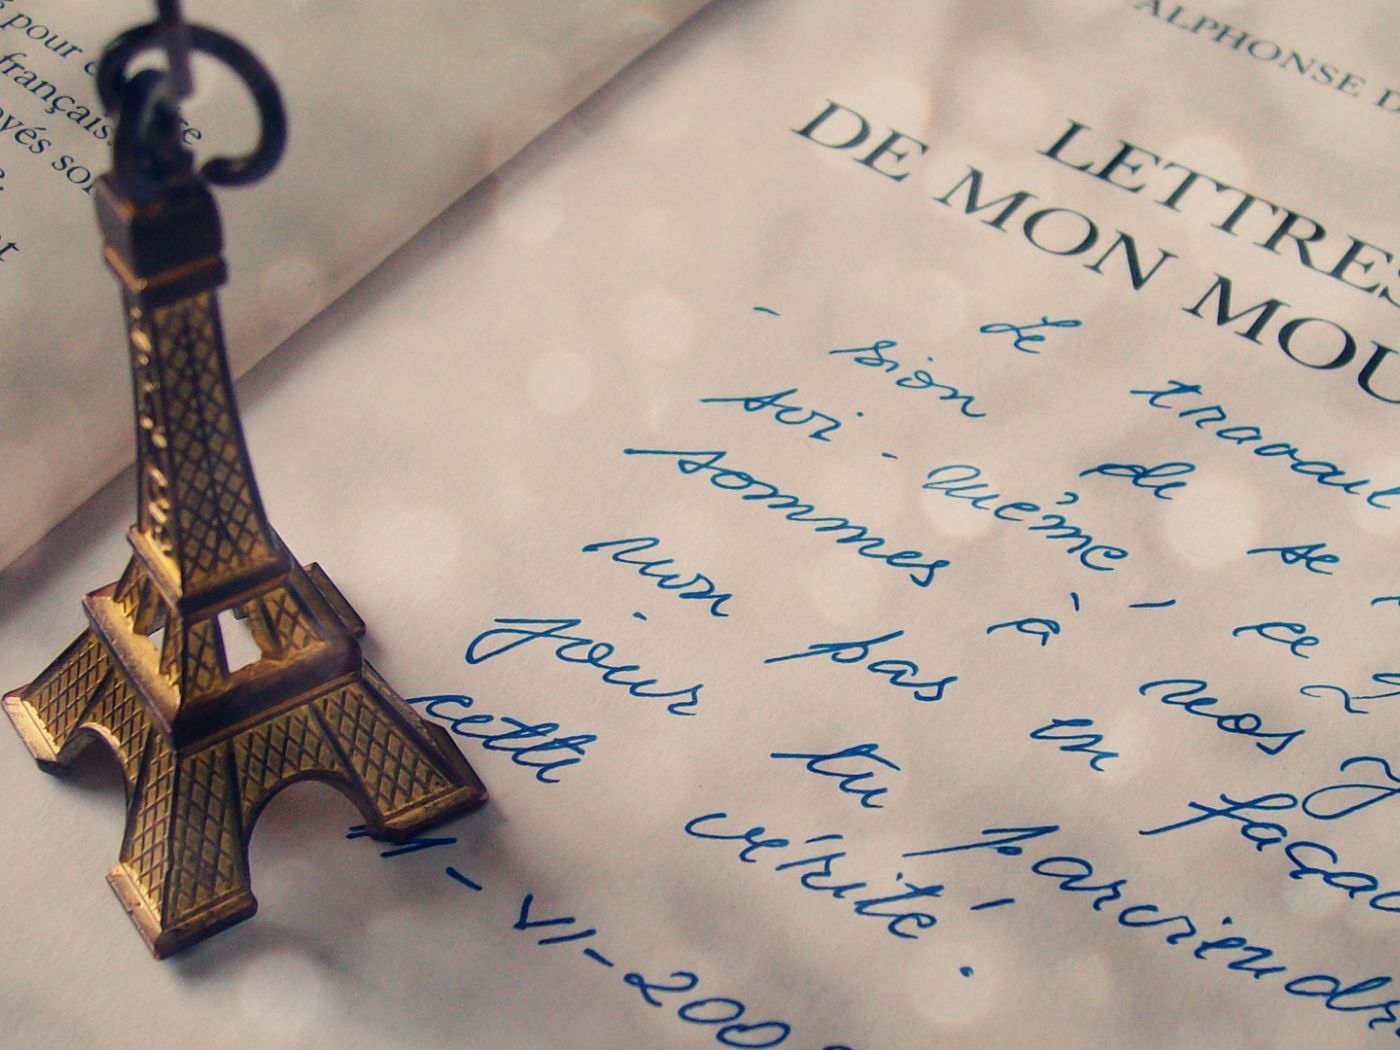 pour
français
re
oyés so
ALPHONSE D
LETTRES
DE MON MOU
- Le travail
sion de se
soi-même, ce
sommes à nos y
non pas en façad
jour tu parviendr
cette vérité.
11-VI-200